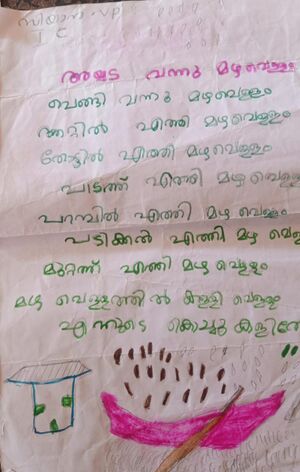 സിയാന vp
I C
അയ്യട വന്നു മഴവെള്ളം
പൊങ്ങി വന്നു മഴവെള്ളം
ആറ്റിൽ എത്തി മഴവെള്ളം
തോട്ടിൽ എത്തി മഴവെള്ളം
പാടത്ത് എത്തി മഴവെള്ളം
പറമ്പിൽ എത്തി മഴ വെള്ളം
പടിക്കൽ എത്തി മഴ വെള്ള
മുറ്റത്ത് എത്തി മഴ വെള്ളം
മഴ വെള്ളത്തിൽ കള്ളി വെള്ളം
എന്നുടെ കൊച്ചു കളിതോ